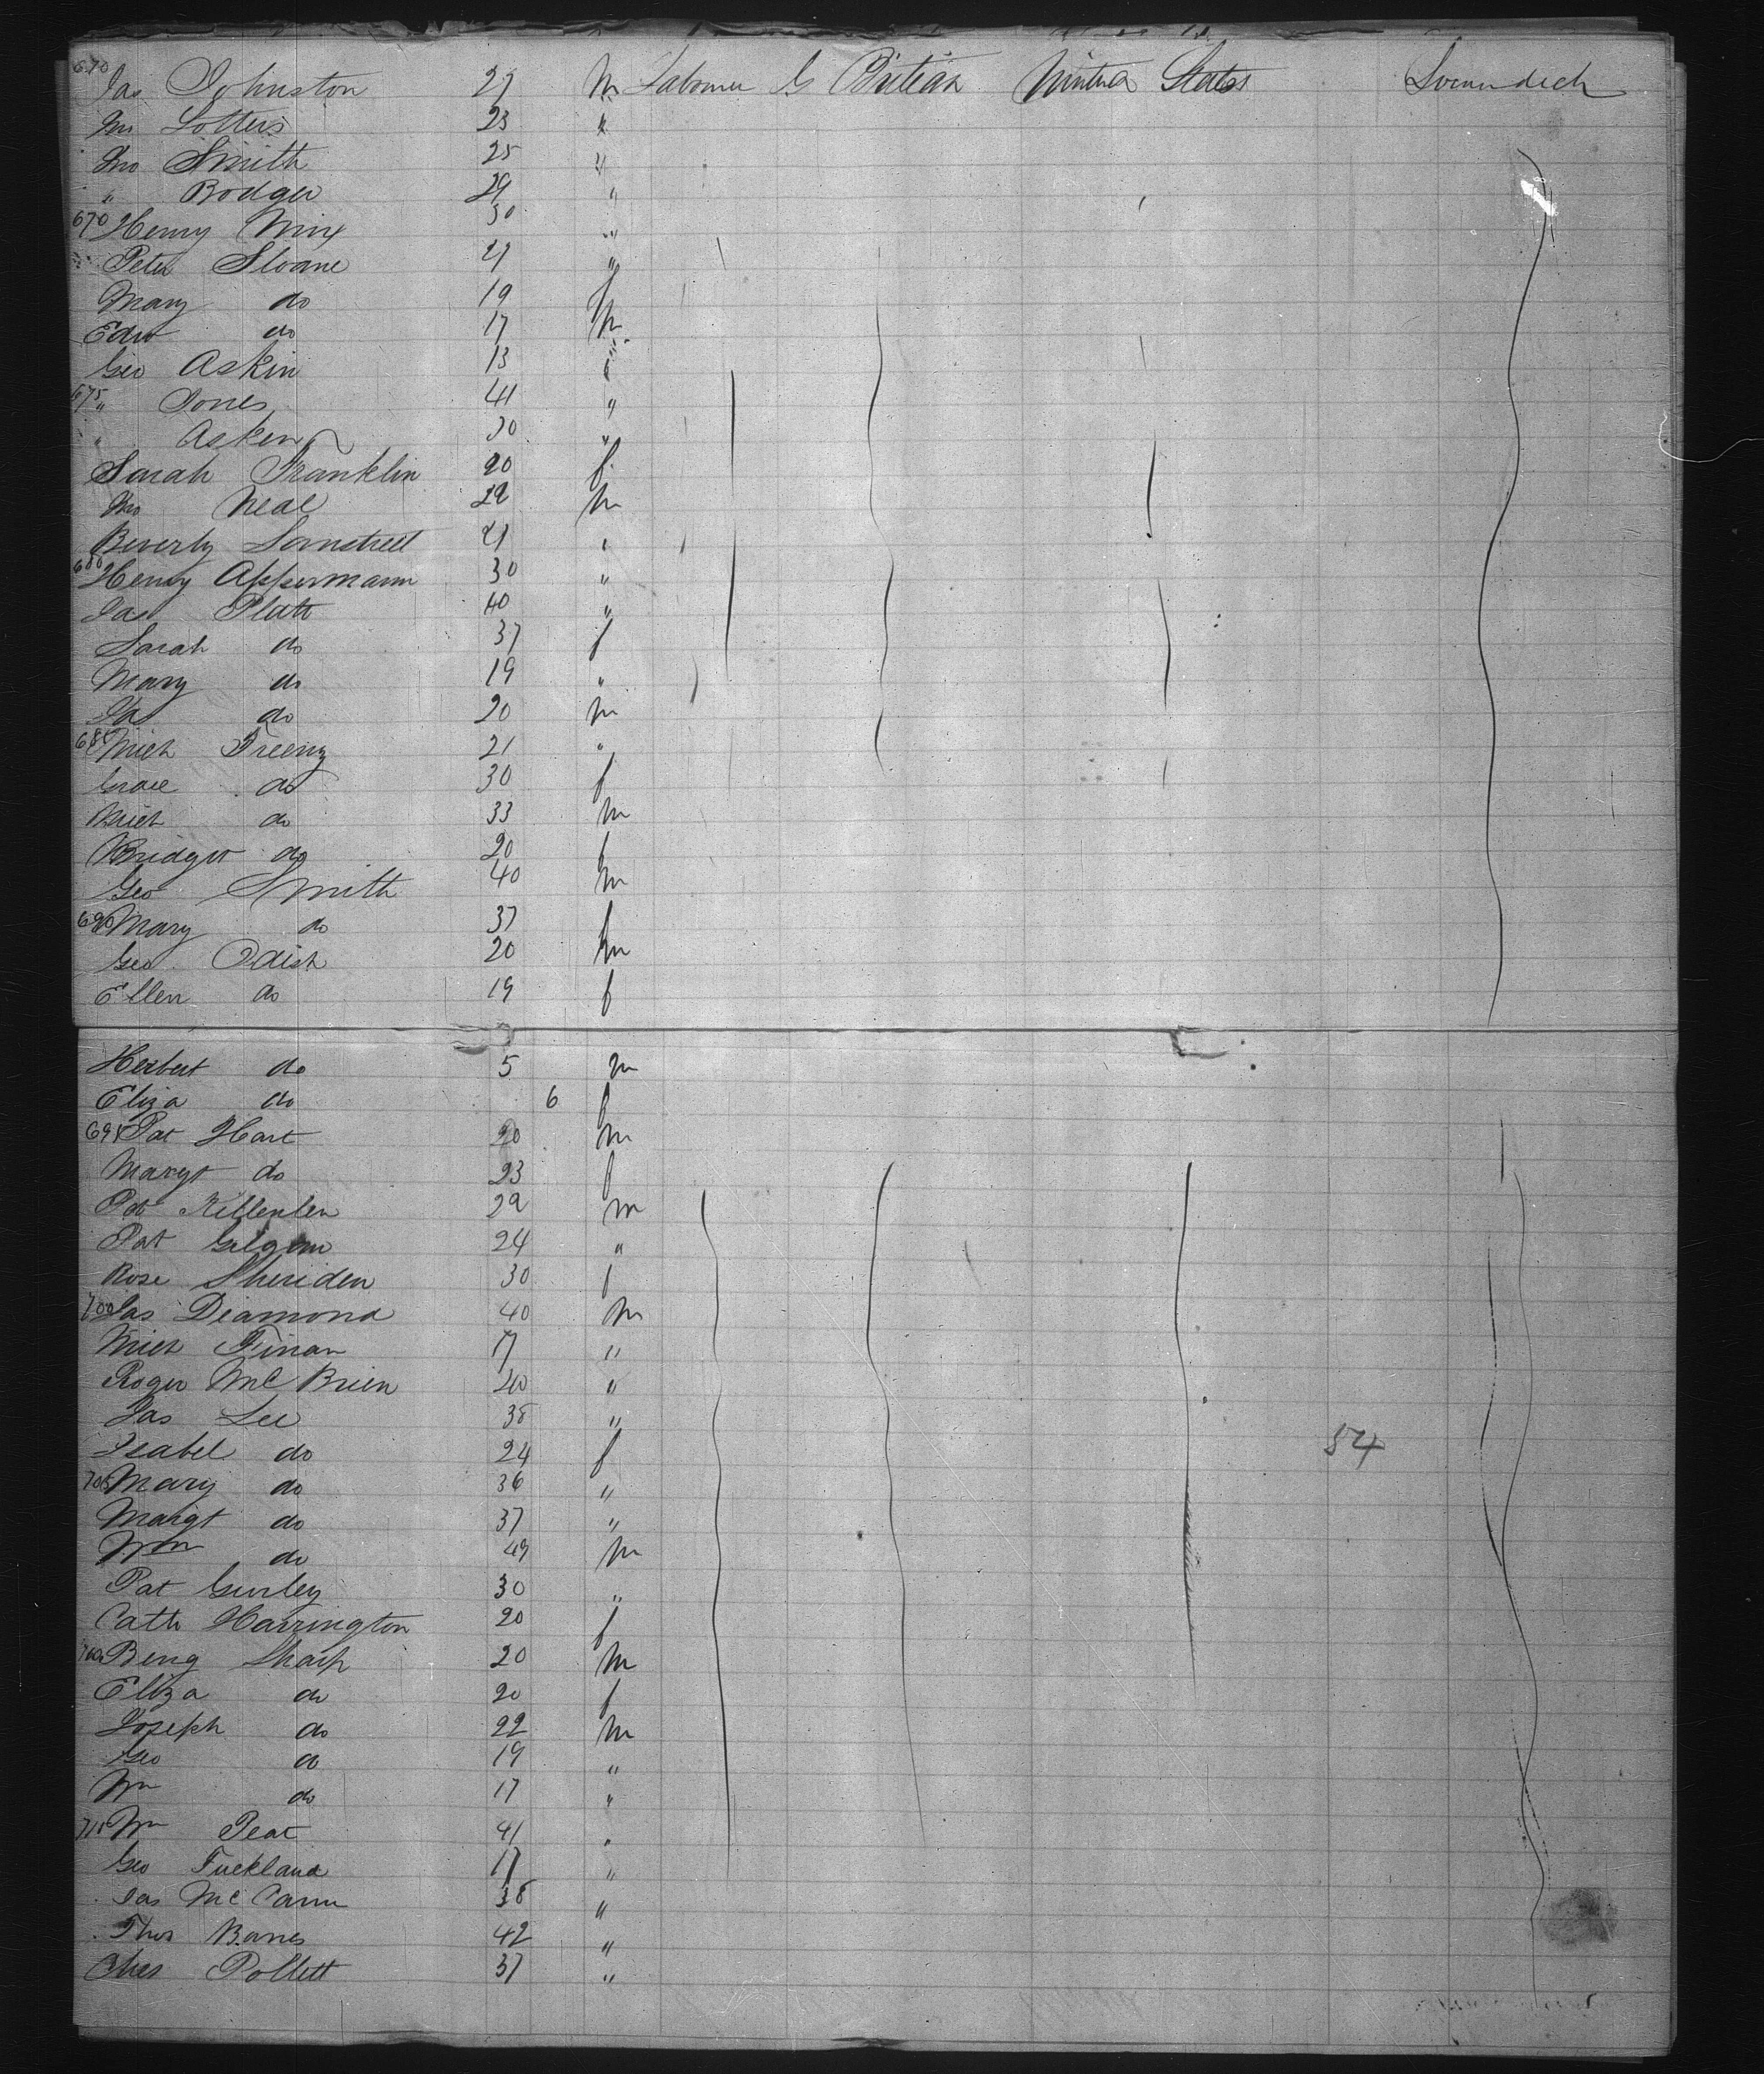 Jas Johnston 27 m Labourer G Britian United States
23 "
Jno Smith 25 "
" Rodger 29 "
670 Henry 30 "
Peter Sloane 27 "
Mary do 19 f
Edw do 17 m
Geo Askin 13 "
675 " Jones 41 "
" Asken 30 "
Sarah Franklin 20 f
Neal 22 m
Beverly "
680 Henry Appermann 30 "
Jas Platt 40 "
Sarah do 37 f
Mary do 19 "
Jas do 20 m
685 Mich Freeny 21 "
Grace do 30 f
Mich do 33 m
Bridget do 20 f
Geo Smith 40 m
690 Mary do 37 f
Geo Odish 20 m
Ellen do 19 f
Herbert do 5 m
Eliza do 6 f
695 Pat Hart 20 m
Margt do 23 f
Pat 22 m
Pat 24 "
Rose Sheriden 30 f
700 Jas Diamond 40 m
Mich Finan 17 "
Roger McBrien 20 "
Jas Lee 38 "
Isabel do 24 f 54
705 Mary do 36 "
Margt do 37 "
Wm do 49 m
Pat Gurley 30 "
Cath Harrington 20 f
Benj Sharp 20 m
Eliza do 20 f
Joseph do 22 m
Geo do 19 "
Wm do 17 "
715 Wm Peat 41 "
Geo Fuckland 17 "
Jas McCann 38 "
Thos Banes 42 "
Chas Pollett 37 "